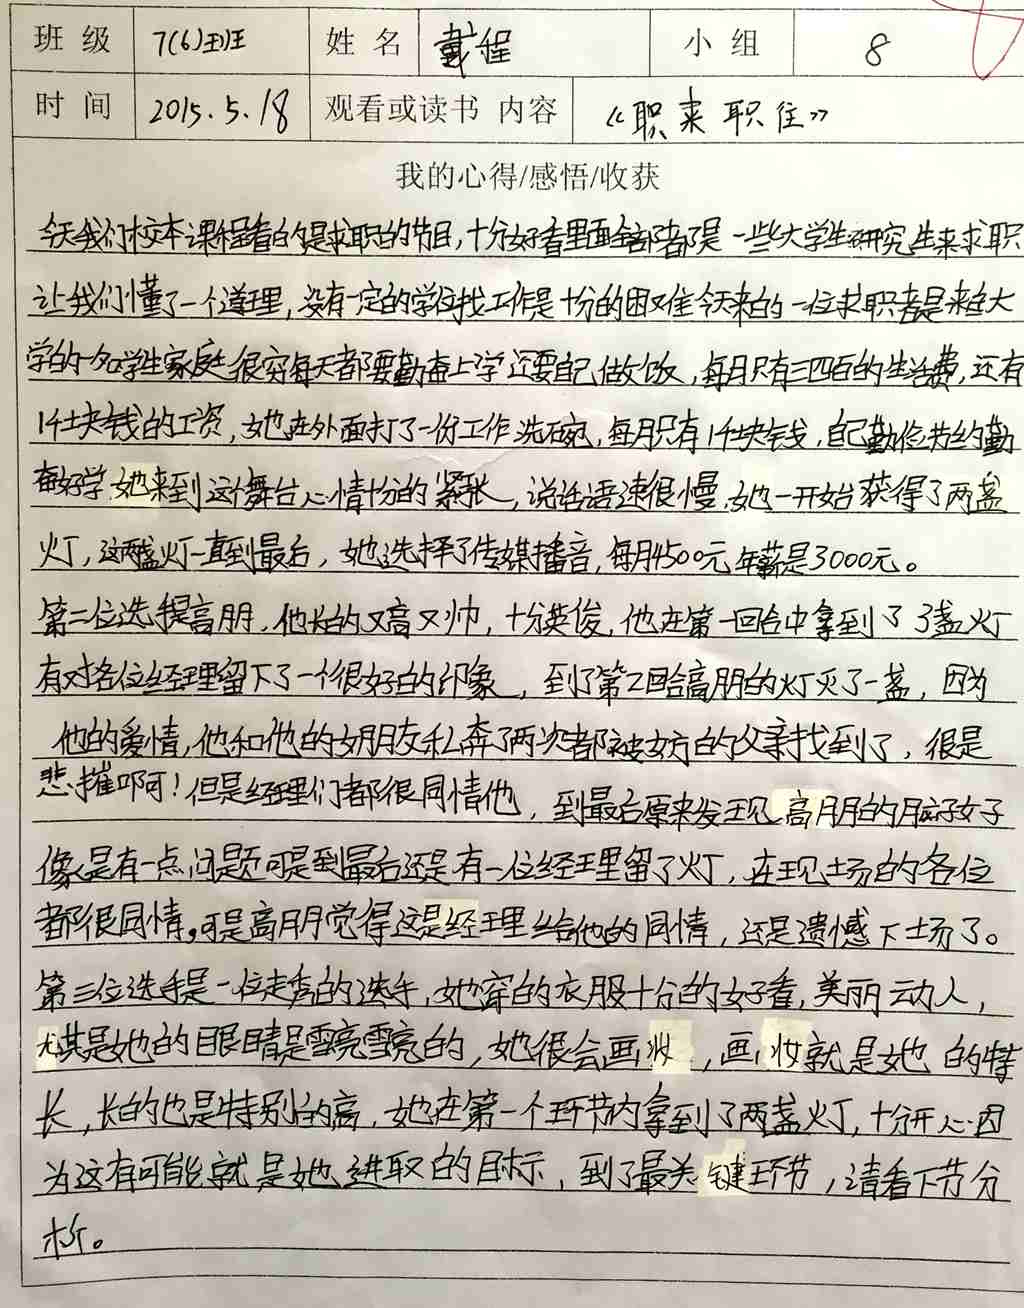 班级 7(6)班 姓名 戴程 小组 8
时间 2015.5.18 观看或读书 内容 《职来职往》
我的心得/感悟/收获
今天我们校本课程看的是求职的节目,十分好看里面全部都是一些大学生研究生来求职
让我们懂了一个道理,没有一定的学位找工作是十分的困难今天来的一位求职者是来自大
学的一名学生家庭很穷每天都要勤奋上学还要自己做饭,每月只有三四百的生活费,还有
1千块钱的工资,她在外面打了一份工作洗碗,每月只有1千块钱,自己勤俭节约勤
奋好学她来到这个舞台心情十分的紧张,说话语速很慢,她一开始获得了两盏
灯,这两盏灯一直到最后,她选择了传媒播音,每月4500元年薪是3000元。
第二位选手是高朋,他长的又高又帅,十分英俊,他在第一回合中拿到了3盏火丁
有对各位经理留下了一个很好的印象,到了第2回合高朋的灯灭了一盏,因为
他的爱情,他和他的女朋友私奔了两次都被女方的父亲找到了,很是
悲摧啊!但是经理们都很同情他,到最后原来发现高朋的脑子好
像是有一点问题可是到最后还是有一位经理留了灯,在现场的各位
都很同情。可是高朋觉得这是经理给他的同情,还是遗憾下场了。
第三位选手是一位走秀的选手,她穿的衣服十分的好看,美丽动人,
尤其是她的眼睛是雪亮雪亮的,她很会画妆,画妆就是她的特
长,长的也是特别的高,她在第一个环节内拿到了两盏灯,十分开心因
为这有可能就是她进取的目标,到了最关键环节,请看下节分
析。